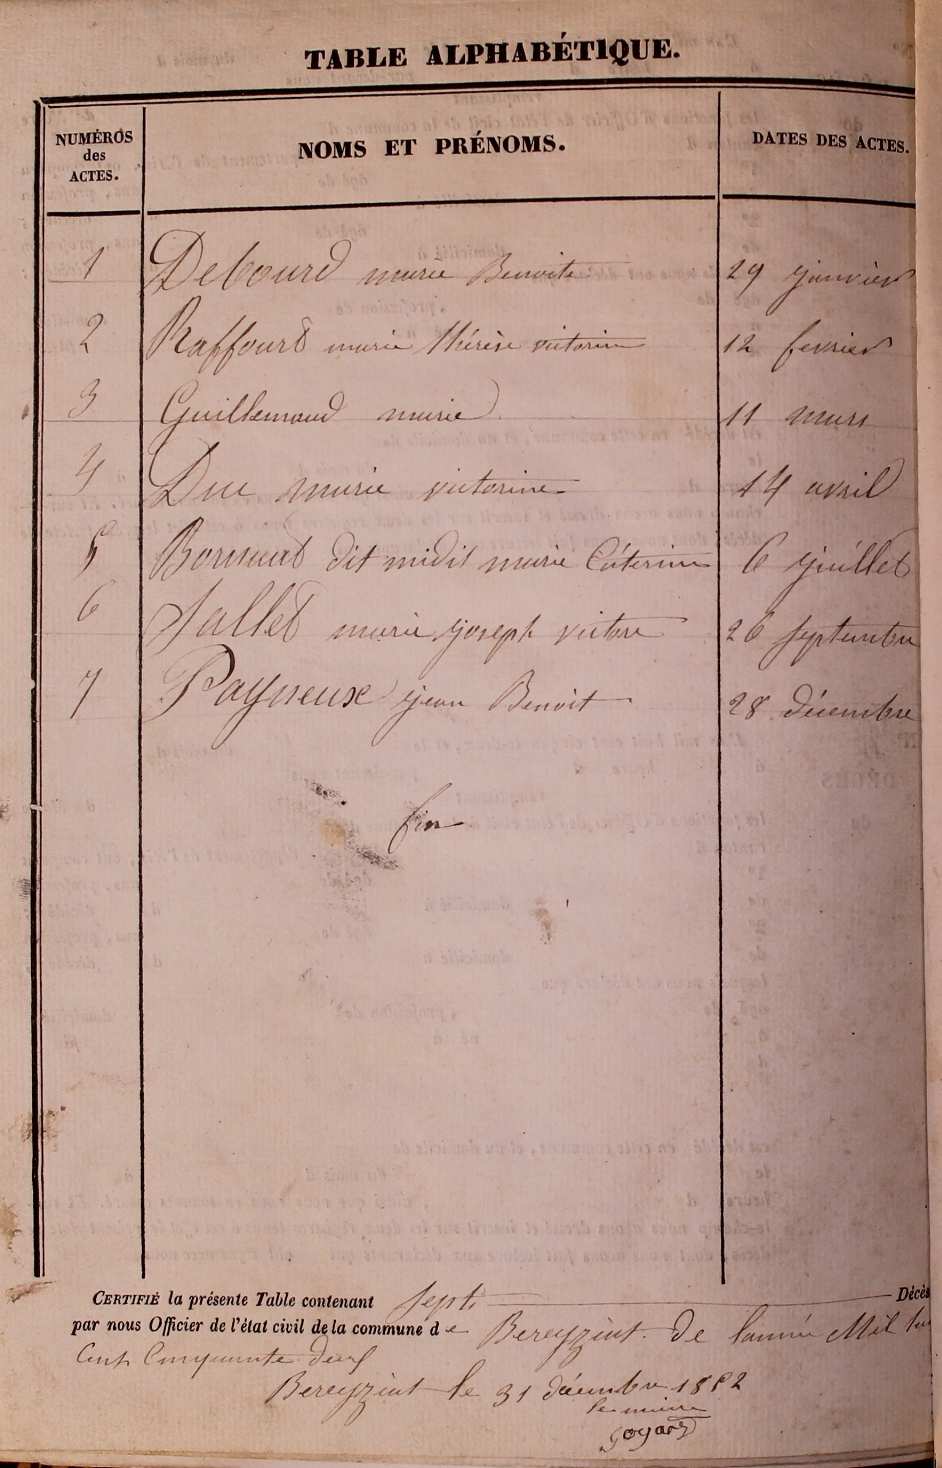 TABLE ALPHABÉTIQUE.
NUMÉROS des ACTES. NOMS ET PRÉNOMS. DATES DES ACTES.
1 Debourd marie Benoite 29 janvier
2 Raffourt marie thérèse victorine 12 fevrier
3 Guillemaud marie 11 mars
4 Duc marie victorine 14 avril
5 dit midit marie Caterine 6 juillet
6 Jallet marie joseph victore 26 septembre
7 Payneux jean Benoit 28 décembre
fin
CERTIFIÉ la présente Table contenant sept Décès
par nous Officier de l'état civil de la commune de Bereyziat de l'année Mil huit
Cent Cinquante deux
Bereyziat le 31 décembre 1852
le maire
Goyard